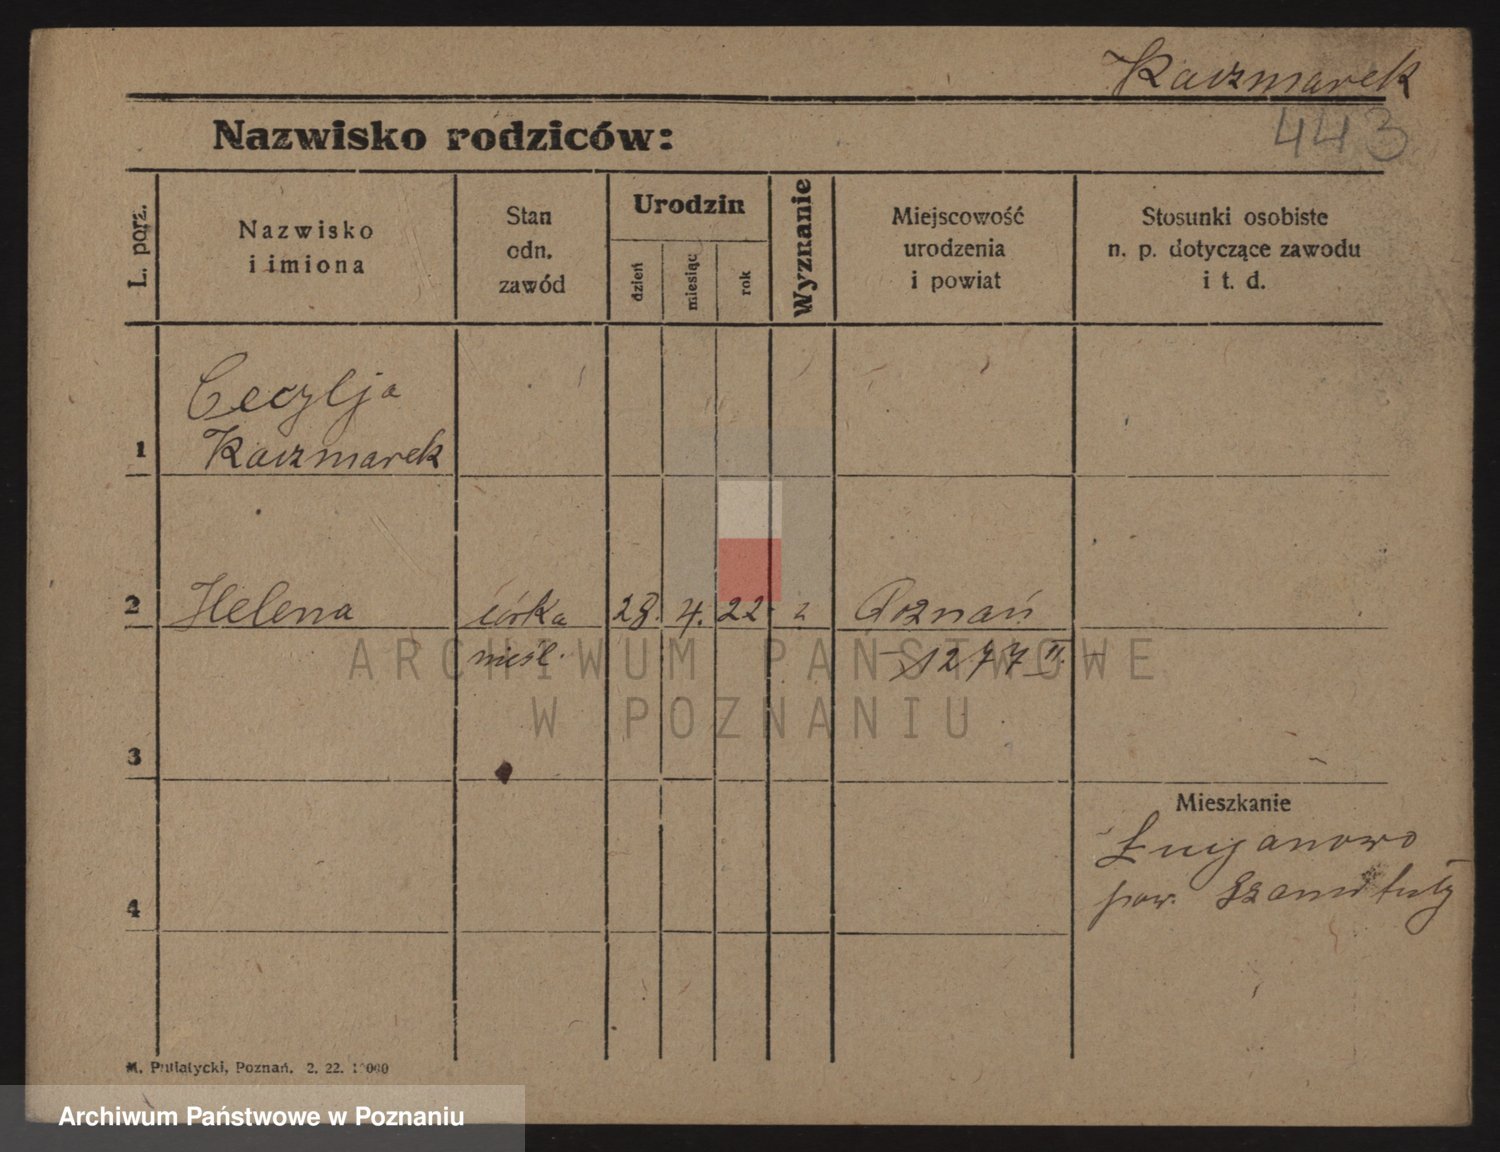 Kaczmarek
443
Nazwisko rodziców:
L. porz.
Nazwisko
i imiona
Stan
odn.
zawód
Urodzin
dzień
miesiąc
rok
Wyznanie
Miejscowość
urodzenia
i powiat
Stosunki osobiste
n. p. dotyczące zawodu
i t. d.
Cecylja
1 Kaczmarek
2 Helena córka 28. 4. 22. Poznań
nieśl. 1277 II.
3
Mieszkanie
Lucjanowo
pow. Szamotuły
4
Poznań. 2. 22.
ARCHIWUM PAŃSTWOWE
W POZNANIU
Archiwum Państwowe w Poznaniu